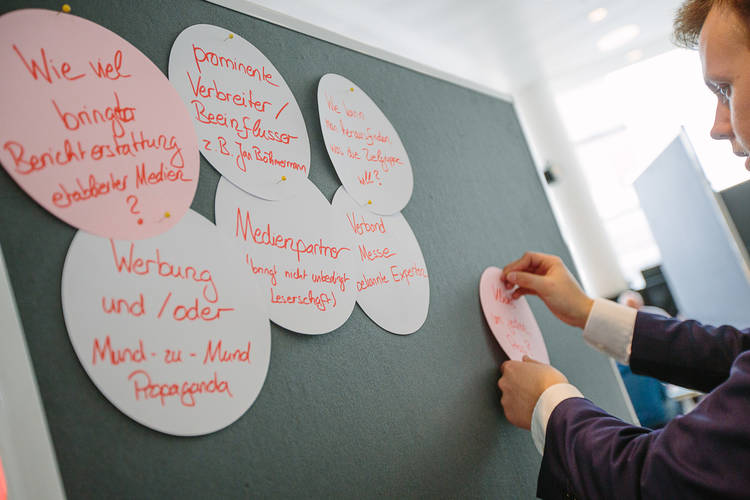 Wie viel
bringt
Berichterstattung
etablierter Medien
?
prominente
Verbreiter/
Beeinflusser
z.B. Jan Böhmermann
Wie kann
man herausfinden,
was die Zielgruppe
will?
Werbung
und/oder
Mund-zu-Mund
Propaganda
Medienpartner
(bringt nicht unbedingt
Leserschaft)
Verband
Messe
bekannte Experten